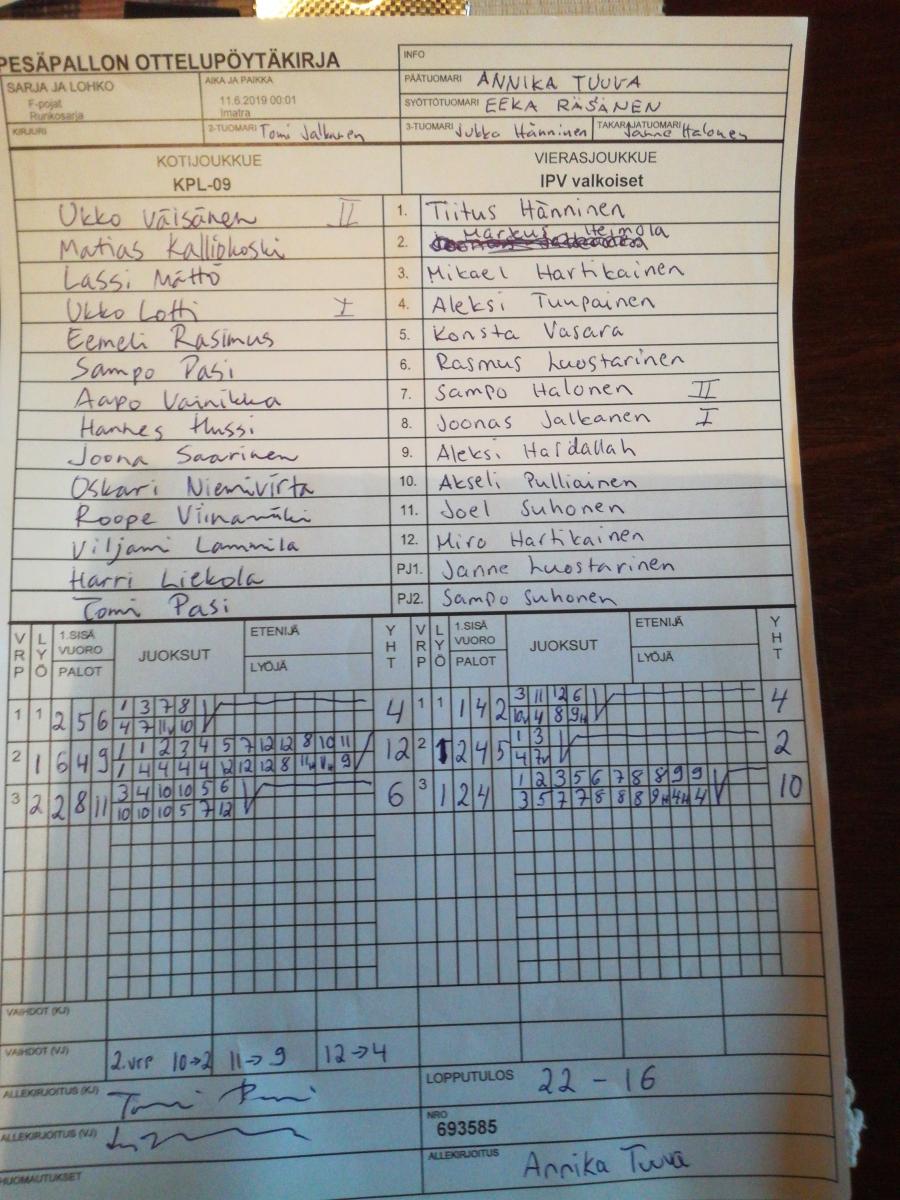 PESÄPALLON OTTELUPÖYTÄKIRJA
INFO
SARJA JA LOHKO
F-pojat
Runkosarja
AIKA JA PAIKKA
11.6.2019 00:01
Imatra
PÄÄTUOMARI ANNIKA TUUVA
SYÖTTÖTUOMARI EEKA RÄSÄNEN
KIRJURI
2-TUOMARI Tomi Jalkanen
3-TUOMARI Jukka Hänninen
TAKARAJATUOMARI Janne Halonen
KOTIJOUKKUE
KPL-09
VIERASJOUKKUE
IPV valkoiset
Ukko Väisänen II 1. Tiitus Hänninen
Matias Kalliokoski 2. Markus Heimola
Lassi Mättö 3. Mikael Hartikainen
Ukko Lotti I 4. Aleksi Tuupainen
Eemeli Rasimus 5. Konsta Vasara
Sampo Pasi 6. Rasmus Luostarinen
Aapo Vainikka 7. Sampo Halonen II
Hannes Hussi 8. Joonas Jalkanen I
Joona Saarinen 9. Aleksi Hardallah
Oskari Niemivirta 10. Akseli Pulliainen
Roope Viinamäki 11. Joel Suhonen
Viljami Lammila 12. Miro Hartikainen
Harri Liekola PJ1. Janne Luostarinen
Tomi Pasi PJ2. Sampo Suhonen
VRP LYÖ 1.SISÄ VUORO PALOT JUOKSUT ETENIJÄ LYÖJÄ YHT VRP LYÖ 1.SISÄ VUORO PALOT JUOKSUT ETENIJÄ LYÖJÄ YHT
1 3 7 8 3 11 12 6
1 1 2 5 6 4 1 1 1 4 2 4
4 7 11v 10 10v 4 8 9H
1 1 2 3 4 5 7 12 12 8 10 11 1 3
2 1 6 4 9 12 2 1 2 4 5 2
1 4 4 4 4 12 12 12 8 9 4 7v
3 4 10 10 5 6 1 2 3 5 6 7 8 8 9 9
3 2 2 8 11 6 3 1 2 4 10
10 10 10 5 7 12 3 5 7 7 8 8 8 9H 4H 4
VAIHDOT (KJ)
VAIHDOT (VJ) 2.vrp 10→2 11→9 12→4
ALLEKIRJOITUS (KJ) Tomi Pasi
LOPPUTULOS 22 - 16
ALLEKIRJOITUS (VJ)
NRO
693585
HUOMAUTUKSET
ALLEKIRJOITUS Annika Tuuva